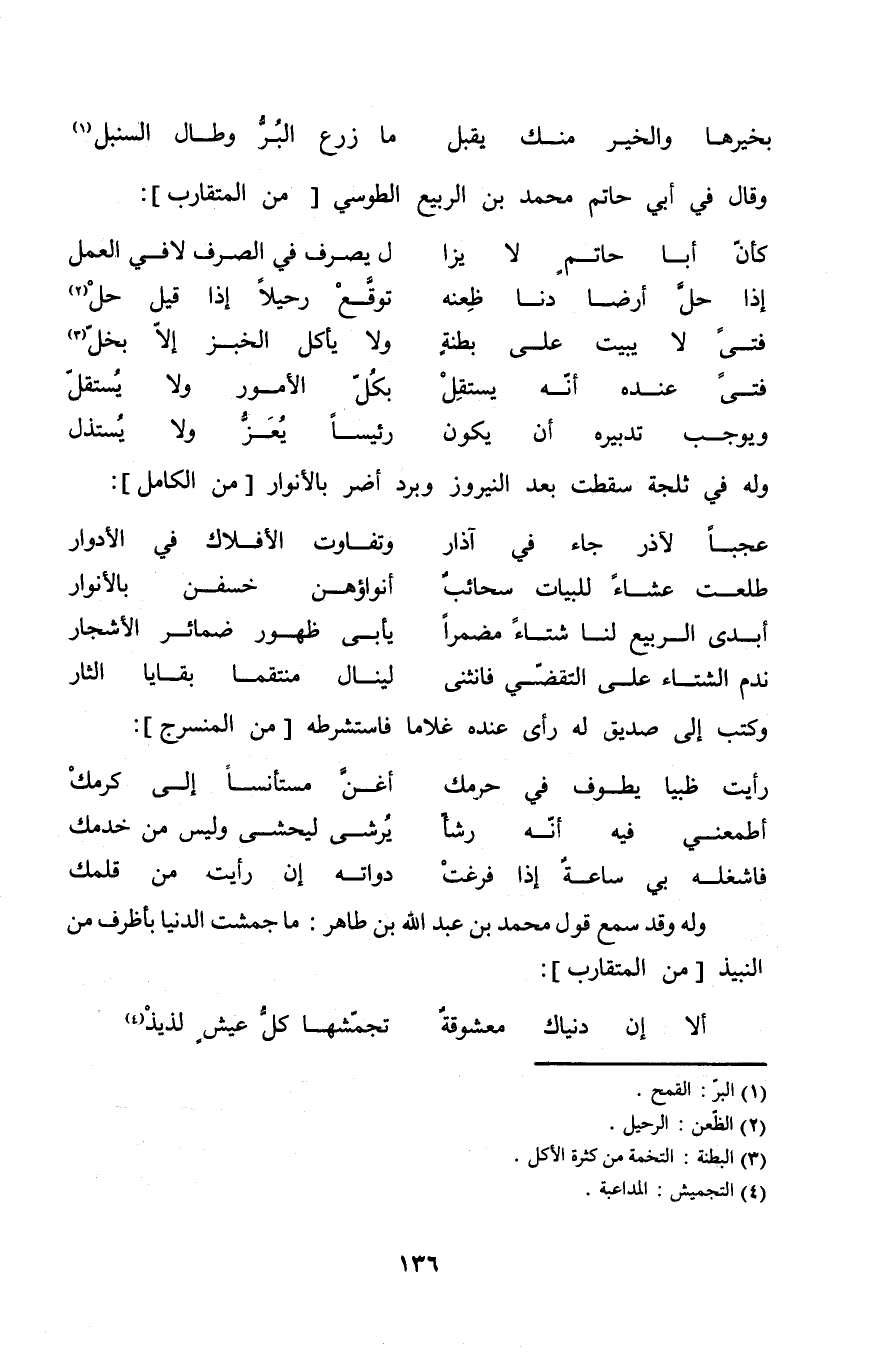 بخيرها والخير منك يقبل ما زرع البُرُّ وطال السنبل(١)
وقال في أبي حاتم محمد بن الربيع الطوسي [ من المتقارب ]:
كأنّ أبا حاتمٍ لا يزا ل يصرف في الصرف لافي العمل
إذا حلَّ أرضا دنا ظِعنه توقَّعْ رحيلاً إذا قيل حلْ(٢)
فتىً لا يبيت على بطنةٍ ولا يأكل الخبز إلاّ بخلّ(٣)
فتىً عنده أنّه يستقلْ بكُلّ الأمور ولا يُستقلّ
ويوجب تدبيره أن يكون رئيساً يُعَزُّ ولا يُستذل
وله في ثلجة سقطت بعد النيروز وبرد أضر بالأنوار [ من الكامل ]:
عجباً لآذر جاء في آذار وتفاوت الأفلاك في الأدوار
طلعت عشاءً للبيات سحائبٌ أنواؤهن خسفن بالأنوار
أبدى الربيع لنا شتاءً مضمراً يأبى ظهور ضمائر الأشجار
ندم الشتاء على التقضّي فانثنى لينال منتقما بقايا الثار
وكتب إلى صديق له رأى عنده غلاما فاستشرطه [ من المنسرج ]:
رأيت ظبيا يطوف في حرمك أغنَّ مستأنساً إلى كرمكْ
أطمعني فيه أنّه رشأ يُرشى ليحشى وليس من خدمك
فاشغله بي ساعةً إذا فرغتْ دواته إن رأيت من قلمك
وله وقد سمع قول محمد بن عبد الله بن طاهر : ما جمشت الدنيا بأظرف من
النبيذ [ من المتقارب ]:
ألا إن دنياك معشوقةٌ تجمّشها كلُّ عيشٍ لذيذْ(٤)
(١) البرّ : القمح .
(٢) الظّعن : الرحيل .
(٣) البطنة : التخمة من كثرة الأكل .
(٤) التجميش : المداعبة .
١٣٦